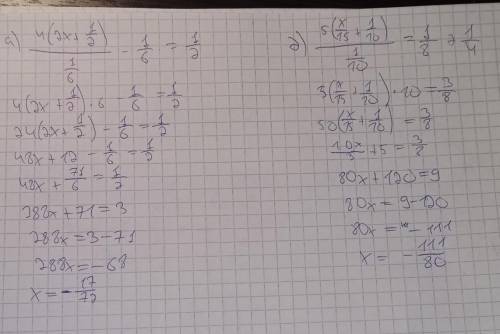 a) 4(2x + 1/2) / (1/6) - 1/6 = 1/2
4(2x + 1/2) · 6 - 1/6 = 1/2
24(2x + 1/2) - 1/6 = 1/2
48x + 12 - 1/6 = 1/2
48x + 71/6 = 1/2
288x + 71 = 3
288x = 3 - 71
288x = -68
x = -17/72
5(x/15 + 1/10) / (1/10) = 1/8 + 1/4
5(x/15 + 1/10) · 10 = 3/8
50(x/15 + 1/10) = 3/8
10x/3 + 5 = 3/8
80x + 120 = 9
80x = 9 - 120
80x = - 111
x = - 111/80